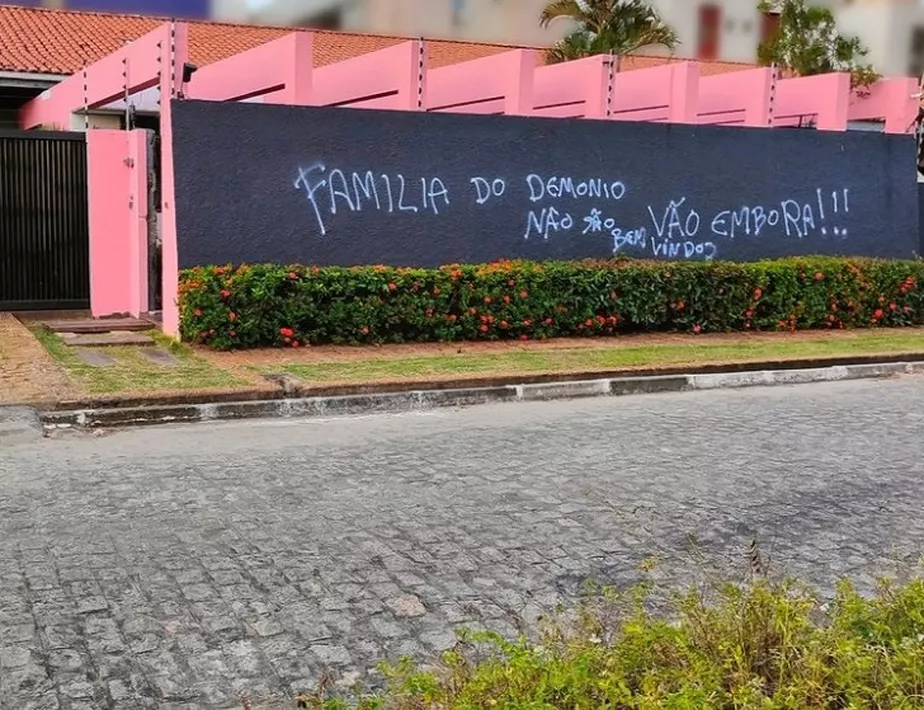 FAMILIA DO DEMONIO
NÃO SÃO BEM VINDOS
VÃO EMBORA!!!